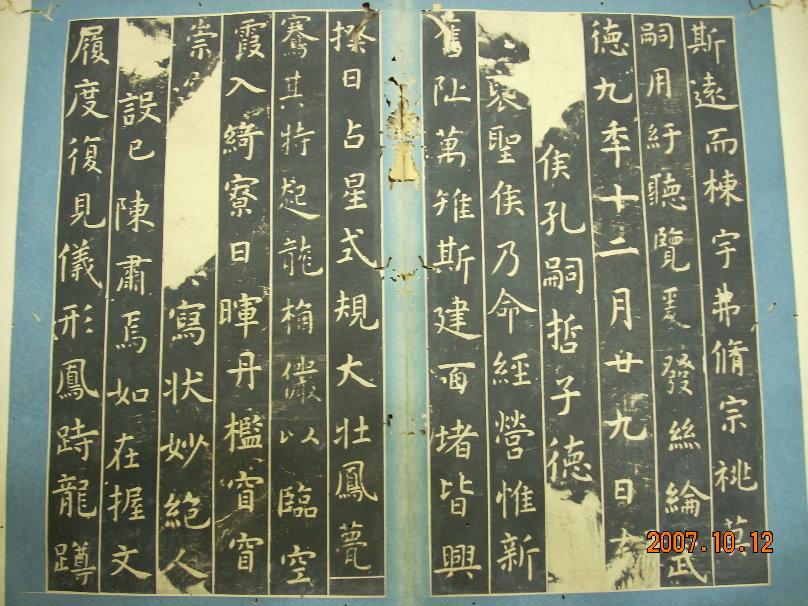 斯遠而棟宇弗脩宗祧莫
嗣用紆聽覽爰發絲綸武
德九年十二月廿九日有
侯孔嗣哲子德
褒聖侯乃命經營惟新
舊阯萬雉斯建百堵皆興
揆日占星式規大壯鳳甍
騫其特起龍桷儼以臨空
霞入綺寮日暉丹檻窅窅
崇邃寫狀妙絕人
設已陳肅焉如在握文
履度復見儀形鳳跱龍蹲
2007.10.12